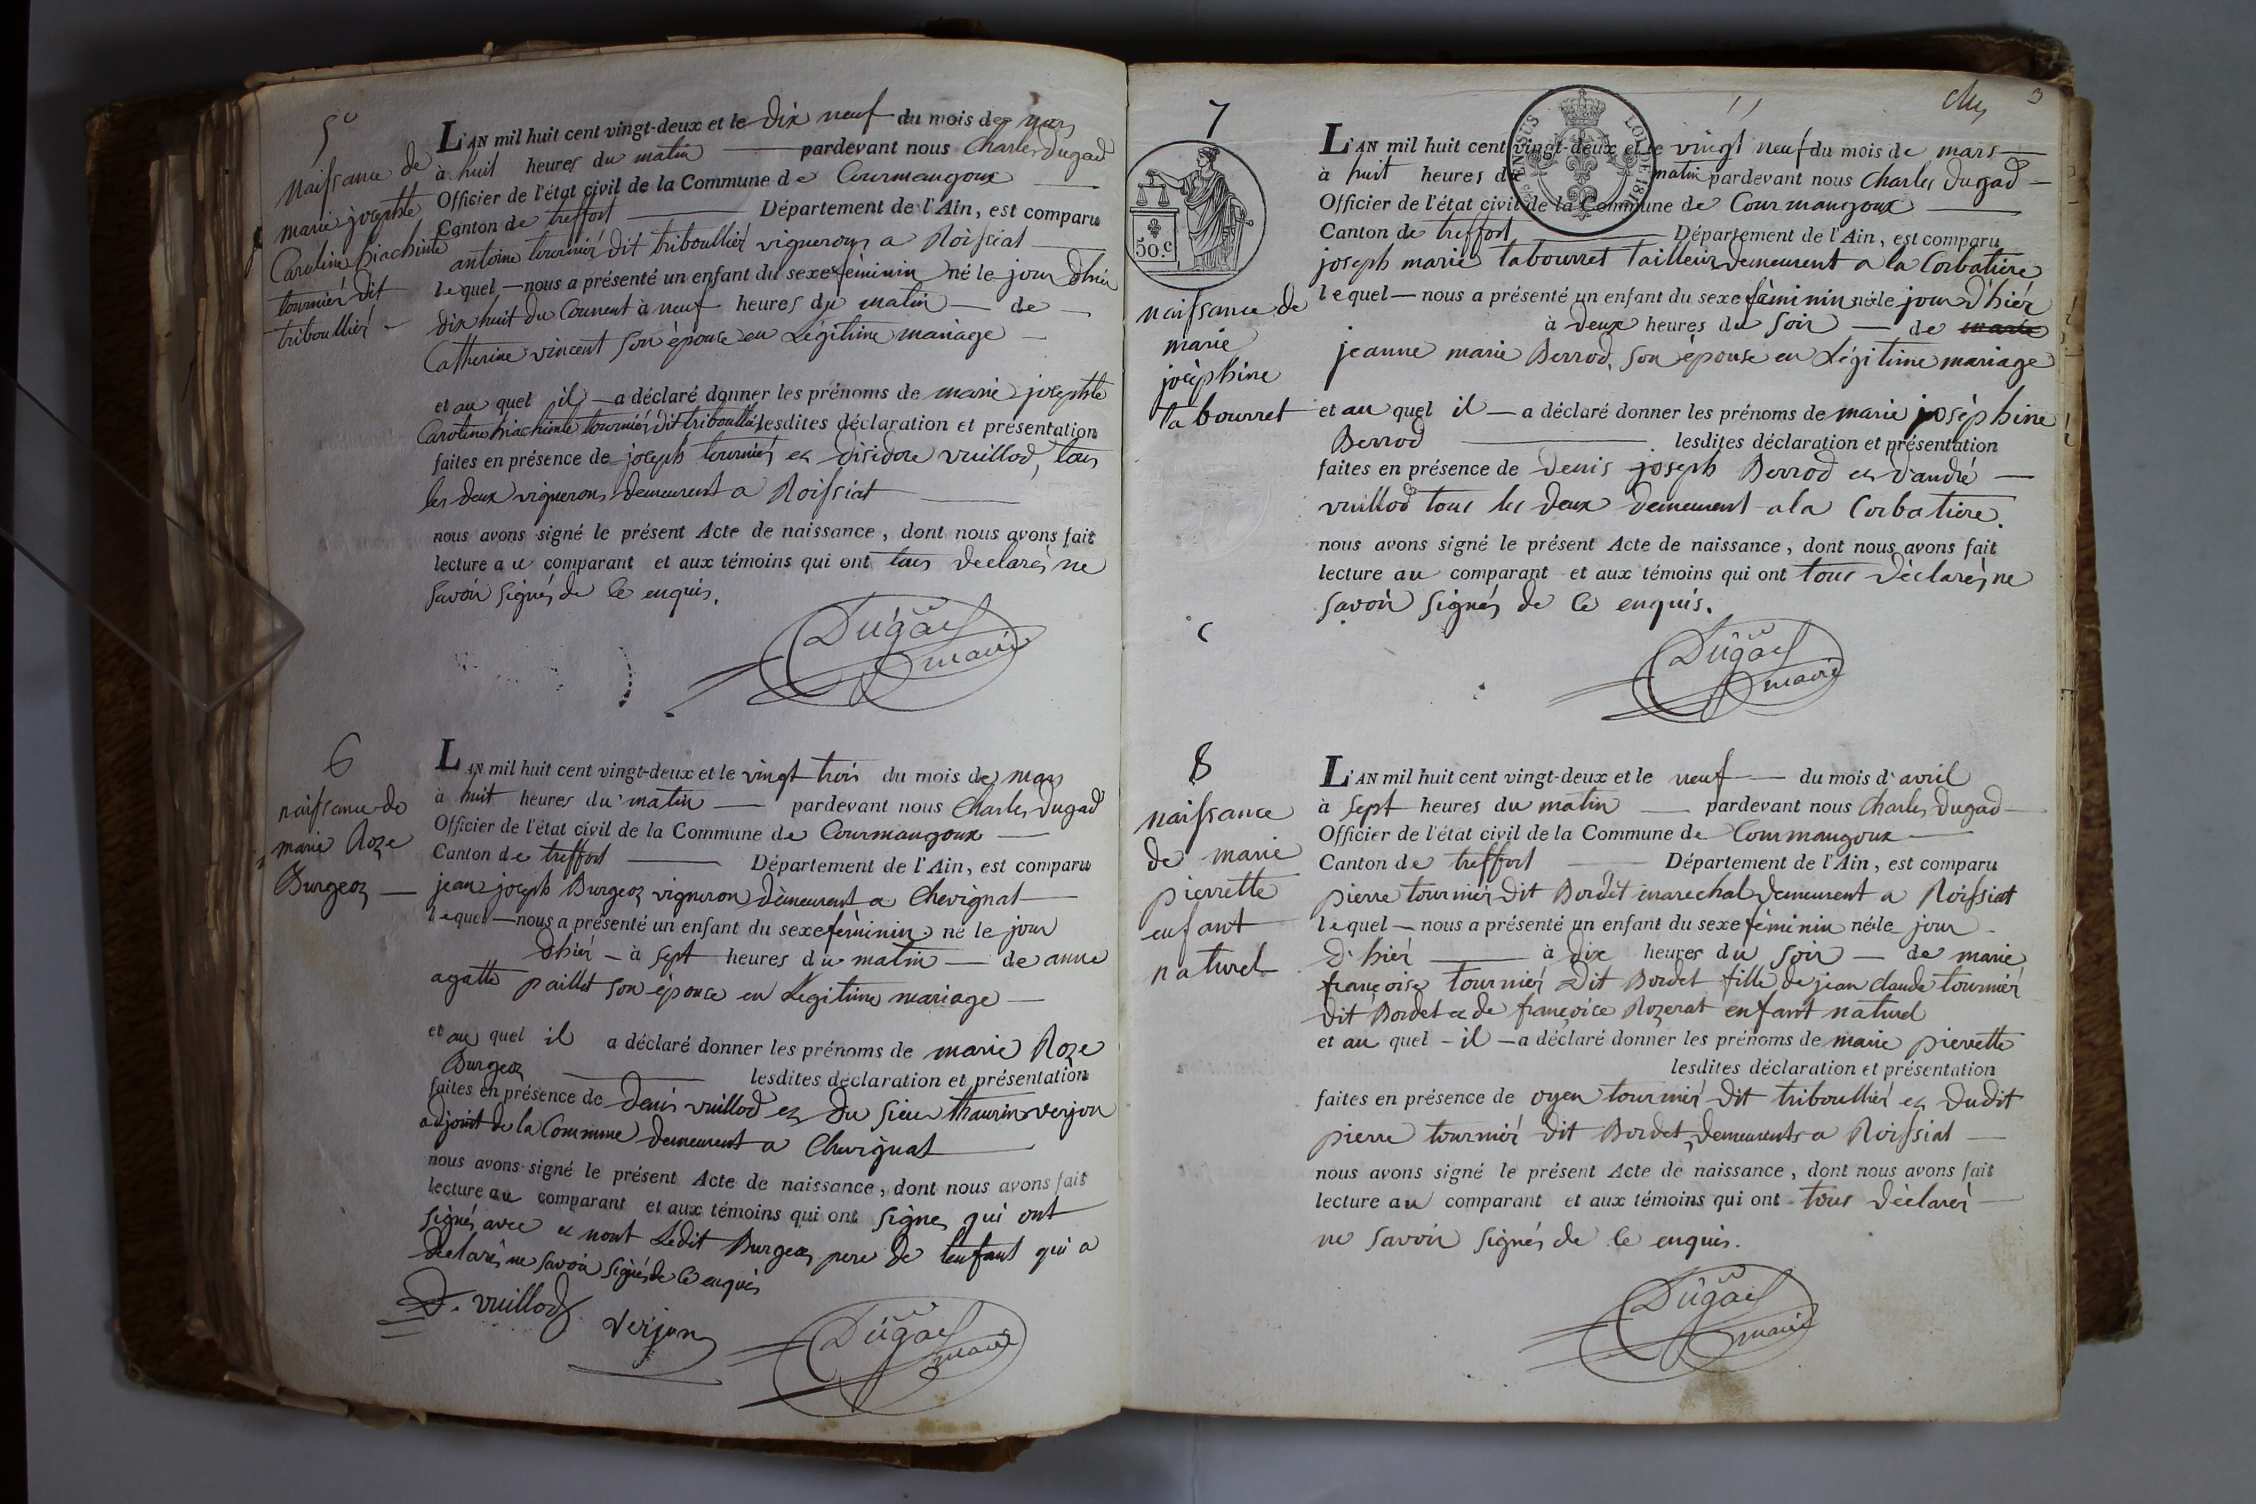 5º
naissance de
marie josephte
Caroline hiachinte
tournier dit
triboullier
L'AN mil huit cent vingt-deux et le dix neuf du mois de mars
à huit heures du matin pardevant nous Charles Dugad
Officier de l'état civil de la Commune de Courmangoux
Canton de treffort Département de l'Ain, est comparu
antoine tournier dit triboullier vigneron a Roissiat
lequel nous a présenté un enfant du sexe féminin né le jour d'hier
dix huit du Courent à neuf heures du matin de
Catherine vincent son épouse en Légitime mariage
et au quel il a déclaré donner les prénoms de marie josephte
Caroline hiachinte tournier dit triboullier lesdites déclaration et présentation
faites en présence de joseph tournier et disidore vuillod, tous
les deux vignerons demeurent a Roissiat
nous avons signé le présent Acte de naissance, dont nous avons fait
lecture au comparant et aux témoins qui ont tous declarés ne
savoir signés de ce enquis.
Dugad
maire
6
naissance de
marie Roze
Burgeoz
L'AN mil huit cent vingt-deux et le vingt trois du mois de mars
à huit heures du matin pardevant nous Charles Dugad
Officier de l'état civil de la Commune de Courmangoux
Canton de treffort Département de l'Ain, est comparu
jean joseph Burgeoz vigneron demeurent a Chevignat
lequel nous a présenté un enfant du sexe féminin né le jour
d'hier à sept heures du matin de anne
agatte paillet son épouse en Legitime mariage
et au quel il a déclaré donner les prénoms de marie Roze
Burgeoz lesdites déclaration et présentation
faites en présence de denis vuillod et du sieur thaurin verjon
adjoint de la Commune demeurent a Chevignat
nous avons signé le présent Acte de naissance, dont nous avons fait
lecture au comparant et aux témoins qui ont signes qui ont
signés avec et nont Ledit Burgeoz pere de lenfant qui a
declarés ne savoir signés de ce enquis
D. vuillod
verjon
Dugad
maire
3
7
50.c
LOI DE
naissance de
marie
joséphine
tabourret
L'AN mil huit cent vingt-deux et le vingt neuf du mois de mars
à huit heures du matin pardevant nous Charles Dugad
Officier de l'état civil de la Commune de Courmangoux
Canton de treffort Département de l'Ain, est comparu
joseph marie tabourret tailleur demeurent a la Corbatiere
lequel nous a présenté un enfant du sexe féminin né le jour d'hier
à deux heures du soir de marie
jeanne marie Berrod, son épouse en Légitime mariage
et au quel il a déclaré donner les prénoms de marie joséphine
Berrod lesdites déclaration et présentation
faites en présence de denis joseph Berrod et d'andré
vuillod tous les deux demeurent a la Corbatiere.
nous avons signé le présent Acte de naissance, dont nous avons fait
lecture au comparant et aux témoins qui ont tous déclarés ne
savoir signés de ce enquis.
Dugad
maire
8
naissance
de marie
pierrette
enfant
naturel
L'AN mil huit cent vingt-deux et le neuf du mois d'avril
à sept heures du matin pardevant nous Charles Dugad
Officier de l'état civil de la Commune de Courmangoux
Canton de treffort Département de l'Ain, est comparu
pierre tournier dit Bordet marechal demeurent a Roissiat
lequel nous a présenté un enfant du sexe féminin né le jour
d'hier à dix heures du soir de marie
françoise tournier dit Bordet fille de jean claude tournier
dit Bordet et de françoise Rozerat enfant naturel
et au quel il a déclaré donner les prénoms de marie pierrette
lesdites déclaration et présentation
faites en présence de oyen tournier dit triboullier et dudit
pierre tournier dit Bordet, demeurents a Roissiat
nous avons signé le présent Acte de naissance, dont nous avons fait
lecture au comparant et aux témoins qui ont tous déclarés
ne savoir signés de ce enquis.
Dugad
maire